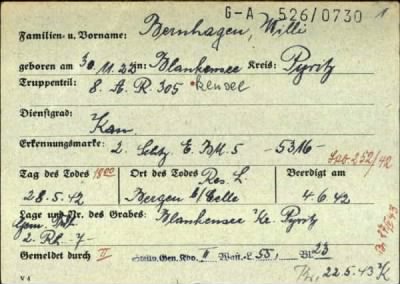 G-A 526/0730 1
Familien- u. Vorname: Bernhagen, Willi
geboren am 30.11.22 in: Blankensee Kreis: Pyritz
Truppenteil: 8. A. R. 305
Dienstgrad: Kan
Erkennungsmarke: 2. E. B. M. 5 - 5316
252/42
Tag des Todes 18 00 Ort des Todes Res. L. Beerdigt am
28.5.42 Bergen b/Celle 4.6.42
Lage und Nr. des Grabes: Blankensee Kr. Pyritz
2. Rh. 7
Gemeldet durch II Stellv. Gen. Kdo. II Watt.-L 55, Bl. 23
22.5.43
V 4